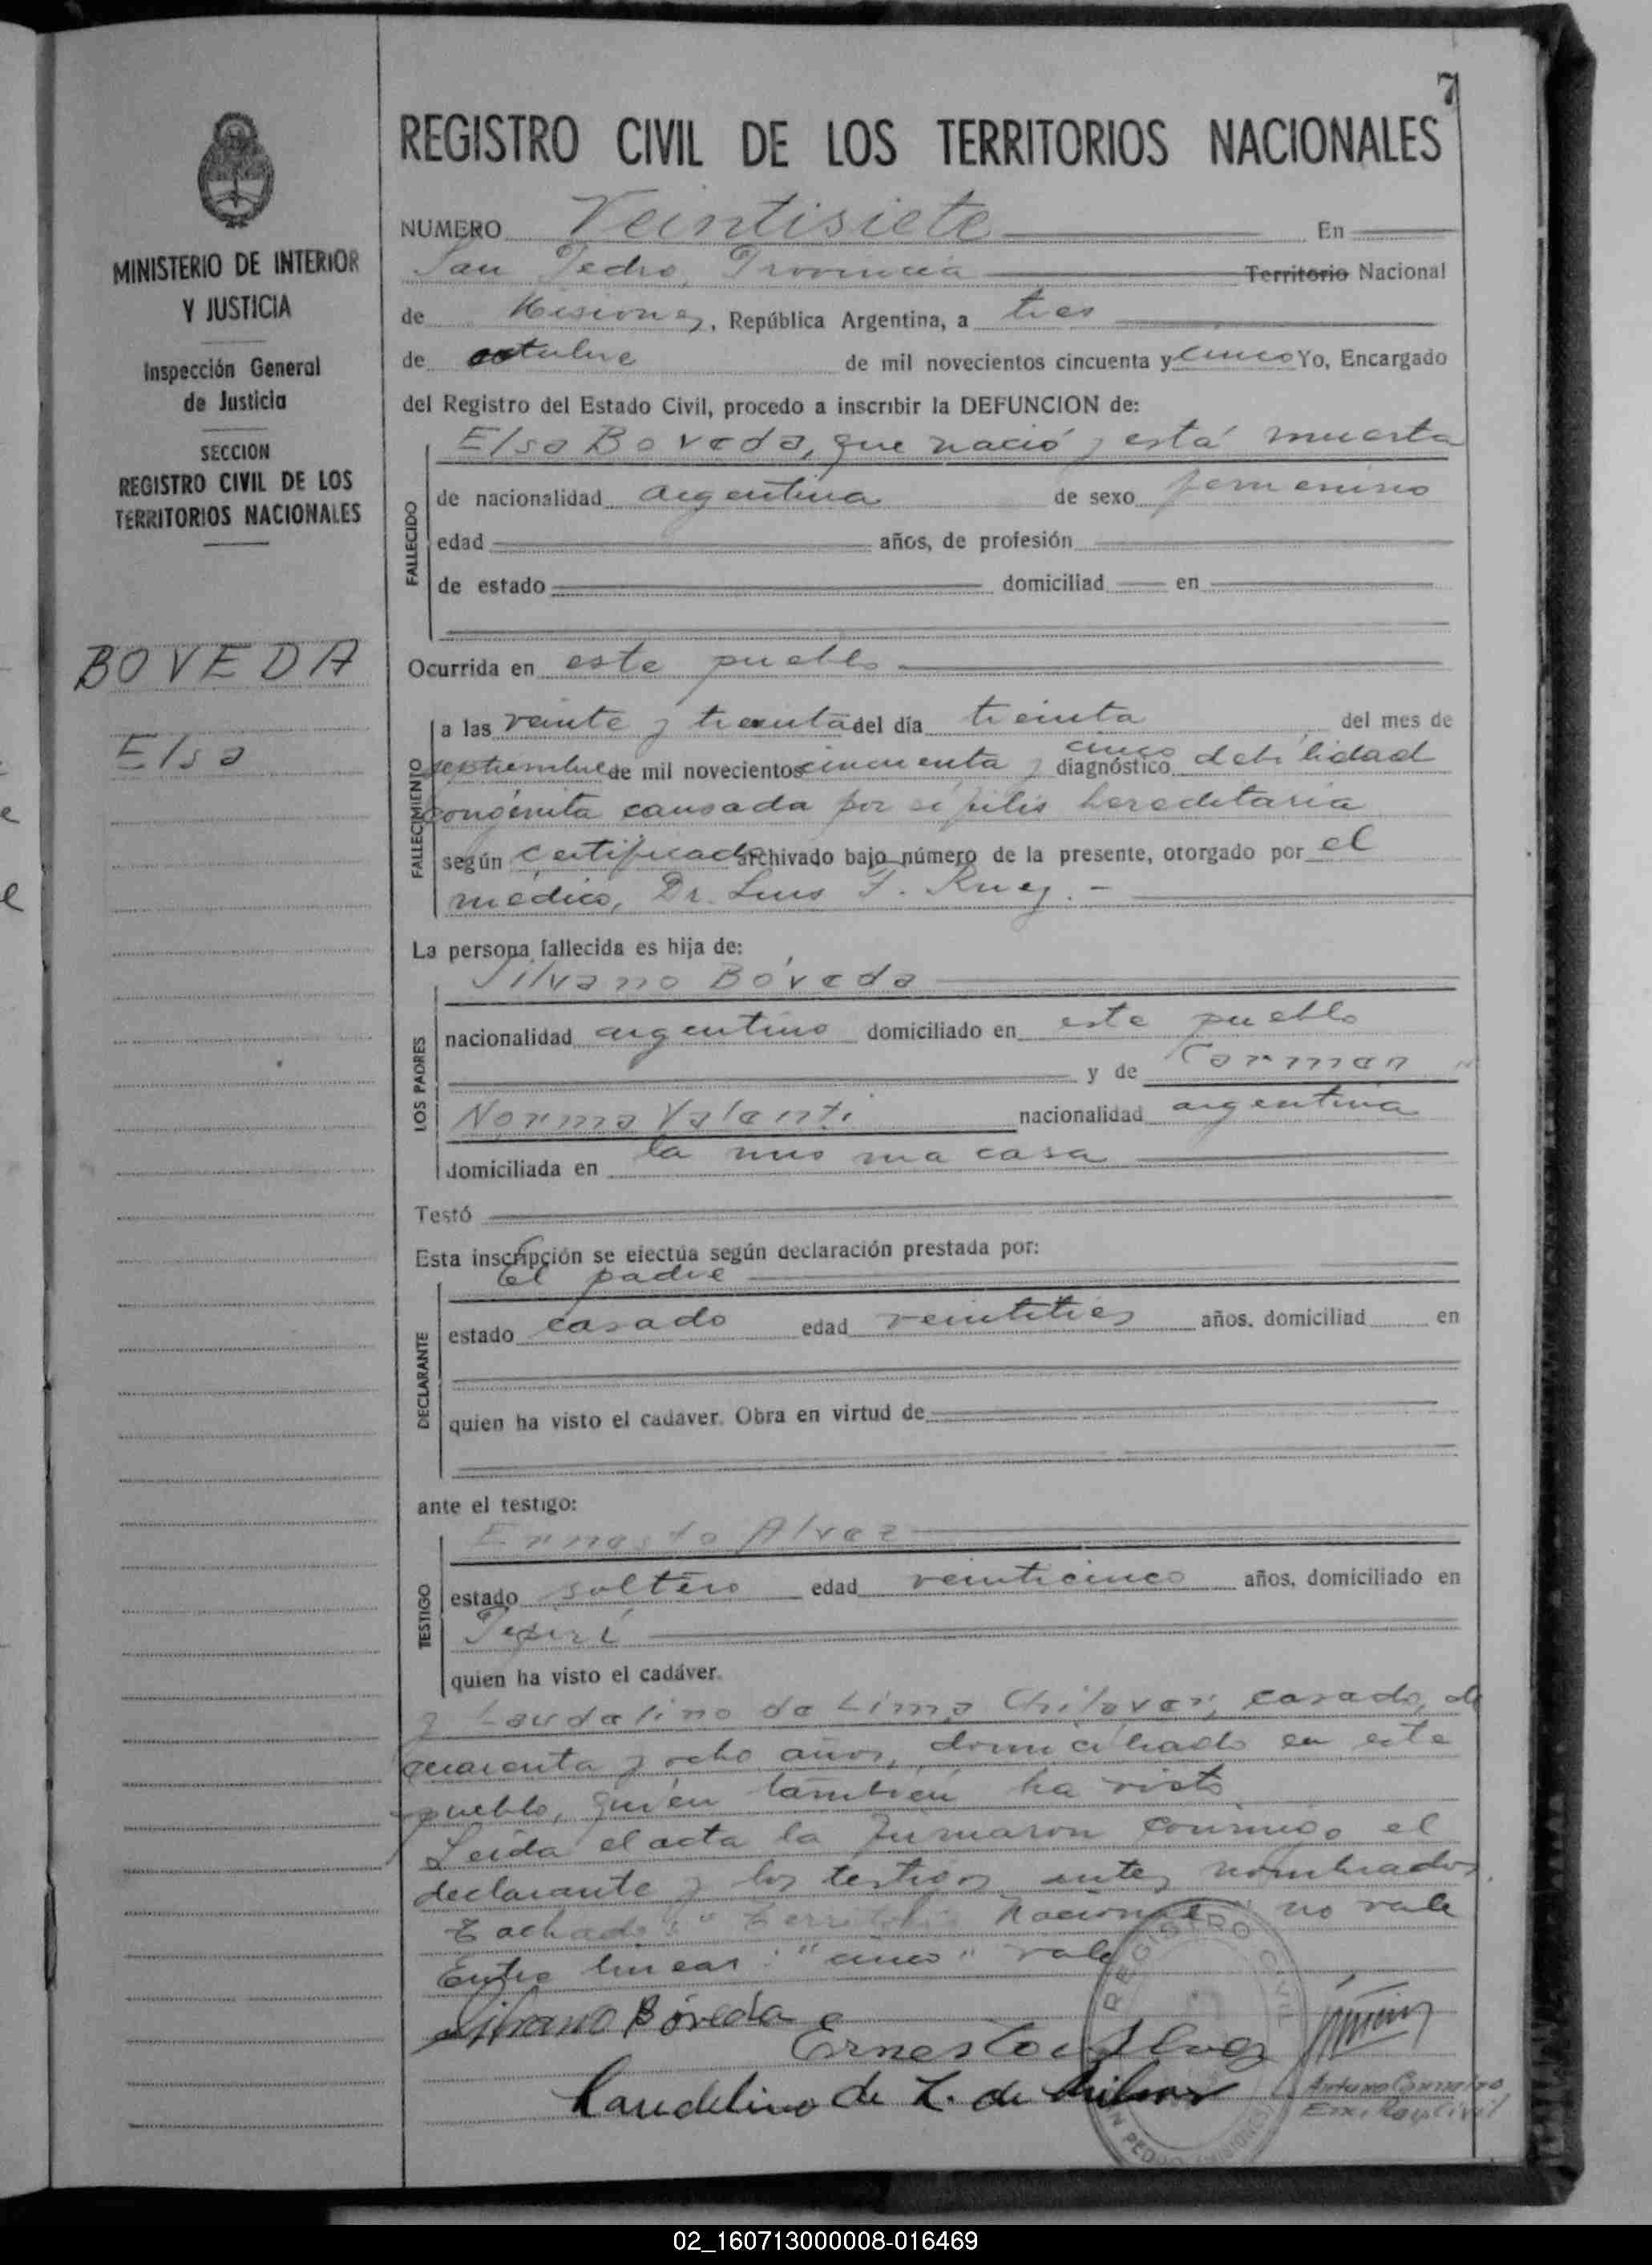 7
REGISTRO CIVIL DE LOS TERRITORIOS NACIONALES
MINISTERIO DE INTERIOR
Y JUSTICIA
Inspección General
de Justicia
SECCION
REGISTRO CIVIL DE LOS
TERRITORIOS NACIONALES
BOVEDA
Elsa
NUMERO Veintisiete En
San Pedro, Provincia Territorio Nacional
de Misiones, República Argentina, a tres
de octubre de mil novecientos cincuenta y cinco Yo, Encargado
del Registro del Estado Civil, procedo a inscribir la DEFUNCION de:
Elsa Boveda, que nació y está muerta
FALLECIDO
de nacionalidad argentina de sexo femenino
edad años, de profesión
de estado domiciliad en
Ocurrida en este pueblo
FALLECIMIENTO
a las veinte y treinta del día treinta del mes de
cinco
septiembre de mil novecientos cincuenta y diagnóstico debilidad
congénita causada por sífilis hereditaria
según certificado archivado bajo número de la presente, otorgado por el
médico, Dr. Luis F.
La persona fallecida es hija de:
Silvano Bóveda
LOS PADRES
nacionalidad argentino domiciliado en este pueblo
y de Carmen
Norma Valenti nacionalidad argentina
domiciliada en la misma casa
Testó
Esta inscripción se efectúa según declaración prestada por:
el padre
DECLARANTE
estado casado edad veintitres años, domiciliad en
quien ha visto el cadaver. Obra en virtud de
ante el testigo:
Ernesto Alvez
TESTIGO
estado soltero edad veinticinco años, domiciliado en
Pepirí
quien ha visto el cadáver.
y Laudelino de Lima Chilaver, casado, de
cuarenta y ocho años, domiciliado en este
pueblo, quien también ha visto
Leída el acta la firmaron conmigo el
declarante y los testigos antes nombrados.
Tachado: "Territorio Nacional" no vale
Entre lineas: "cinco" vale
Silvano Bóveda
Ernesto Alvez
Laudelino de L. de
REGISTRO CIVIL
SAN PEDRO (MISIONES)
Enc. Reg. Civil
02_160713000008-016469